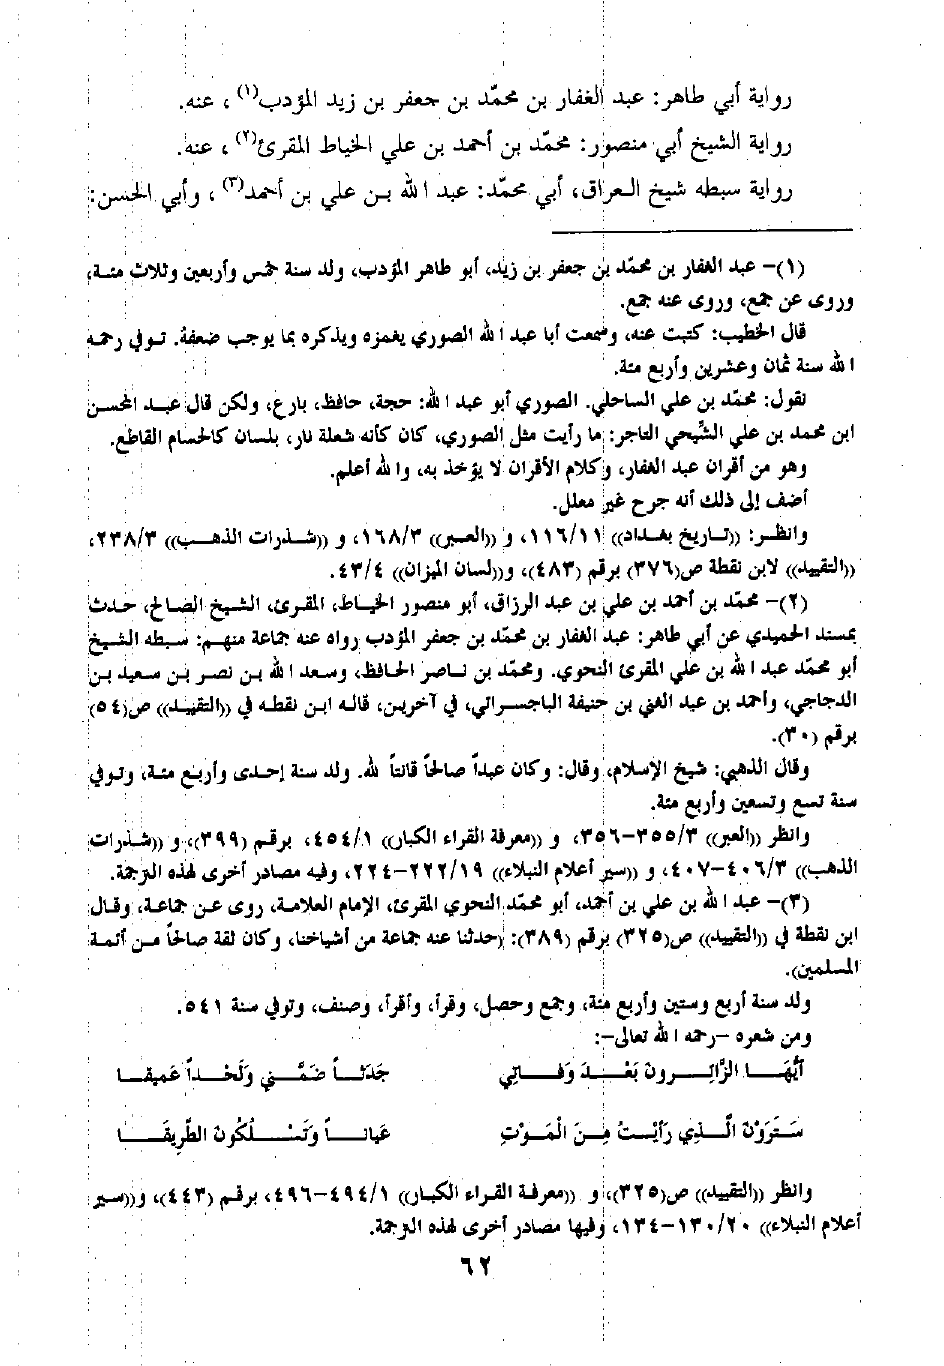 رواية أبي طاهر: عبد الغفار بن محمّد بن جعفر بن زيد المؤدب(١)، عنه.
رواية الشيخ أبي منصور: محمّد بن أحمد بن علي الخياط المقرئ(٢)، عنه.
رواية سبطه شيخ العراق، أبي محمّد: عبد الله بن علي بن أحمد(٣)، وأبي الحسن:
(١)- عبد الغفار بن محمّد بن جعفر بن زيد، أبو طاهر المؤدب، ولد سنة خمس وأربعين وثلاث مئة،
وروى عن جمع، وروى عنه جمع.
قال الخطيب: كتبت عنه، وسمعت أبا عبد الله الصوري يغمزه ويذكره بما يوجب ضعفة. توفي رحمه
الله سنة ثمان وعشرين وأربع مئة.
نقول: محمّد بن علي الساحلي. الصوري أبو عبد الله: حجة، حافظ، بارع، ولكن قال عبد المحسن
ابن محمد بن علي الشِّيحي التاجر: ما رأيت مثل الصوري، كان كأنه شعلة نار، بلسان كالحسام القاطع.
وهو من أقران عبد الغفار، وكلام الأقران لا يؤخذ به، والله أعلم.
أضف إلى ذلك أنه جرح غير معلل.
وانظر: ((تاريخ بغداد)) ١١٦/١١، و ((العبر)) ١٦٨/٣، و ((شذرات الذهب)) ٢٣٨/٣،
((التقييد)) لابن نقطة ص(٣٧٦) برقم (٤٨٣)، و((لسان الميزان)) ٤٣/٤.
(٢)- محمّد بن أحمد بن علي بن عبد الرزاق، أبو منصور الخياط، المقرئ، الشيخ الصالح، حدث
بمسند الحميدي عن أبي طاهر: عبد الغفار بن محمّد بن جعفر المؤدب رواه عنه جماعة منهم: سبطه الشيخ
أبو محمّد عبد الله بن علي المقرئ النحوي. ومحمّد بن ناصر الحافظ، وسعد الله بن نصر بن سعيد بن
الدجاجي، وأحمد بن عبد الغني بن حنيفة الباجسرائي، في آخرين، قاله ابن نقطه في ((التقييد)) ص(٥٤)
برقم (٣٠).
وقال الذهبي: شيخ الإسلام، وقال: وكان عبداً صالحاً قانتاً لله. ولد سنة إحدى وأربع مئة، وتوفي
سنة تسع وتسعين وأربع مئة.
وانظر ((العبر)) ٣٥٥/٣-٣٥٦، و ((معرفة القراء الكبار)) ٤٥٤/١، برقم (٣٩٩)، و ((شذرات
الذهب)) ٤٠٦/٣-٤٠٧، و ((سير أعلام النبلاء)) ٢٢٢/١٩-٢٢٤، وفيه مصادر أخرى لهذه الترجمة.
(٣)- عبد الله بن علي بن أحمد، أبو محمّد النحوي المقرئ، الإمام العلامة، روى عن جماعة، وقال
ابن نقطة في ((التقييد)) ص(٣٢٥) برقم (٣٨٩): (حدثنا عنه جماعة من أشياخنا، وكان ثقة صالحاً من أئمة
المسلمين).
ولد سنة أربع وستين وأربع مئة، وجمع وحصل، وقرأ، وأقرأ، وصنف، وتوفي سنة ٥٤١.
ومن شعره -رحمه الله تعالى-:
أَيُّهَا الزَّائِرونَ بَعْدَ وَفَاتِي    جَدَثاً ضَمَّنِي وَلَحْداً عَميقا
سَتَرَوْنَ الَّذِي رَأَيْتُ مِنَ الْمَوْتِ    عَياناً وَتَسْلُكُونَ الطَّرِيقَا
وانظر ((التقييد)) ص(٣٢٥)، و ((معرفة القراء الكبار)) ٤٩٤/١-٤٩٦، برقم (٤٤٣)، و((سير
أعلام النبلاء)) ١٣٠/٢٠-١٣٤، وفيها مصادر أخرى لهذه الترجمة.
٦٢